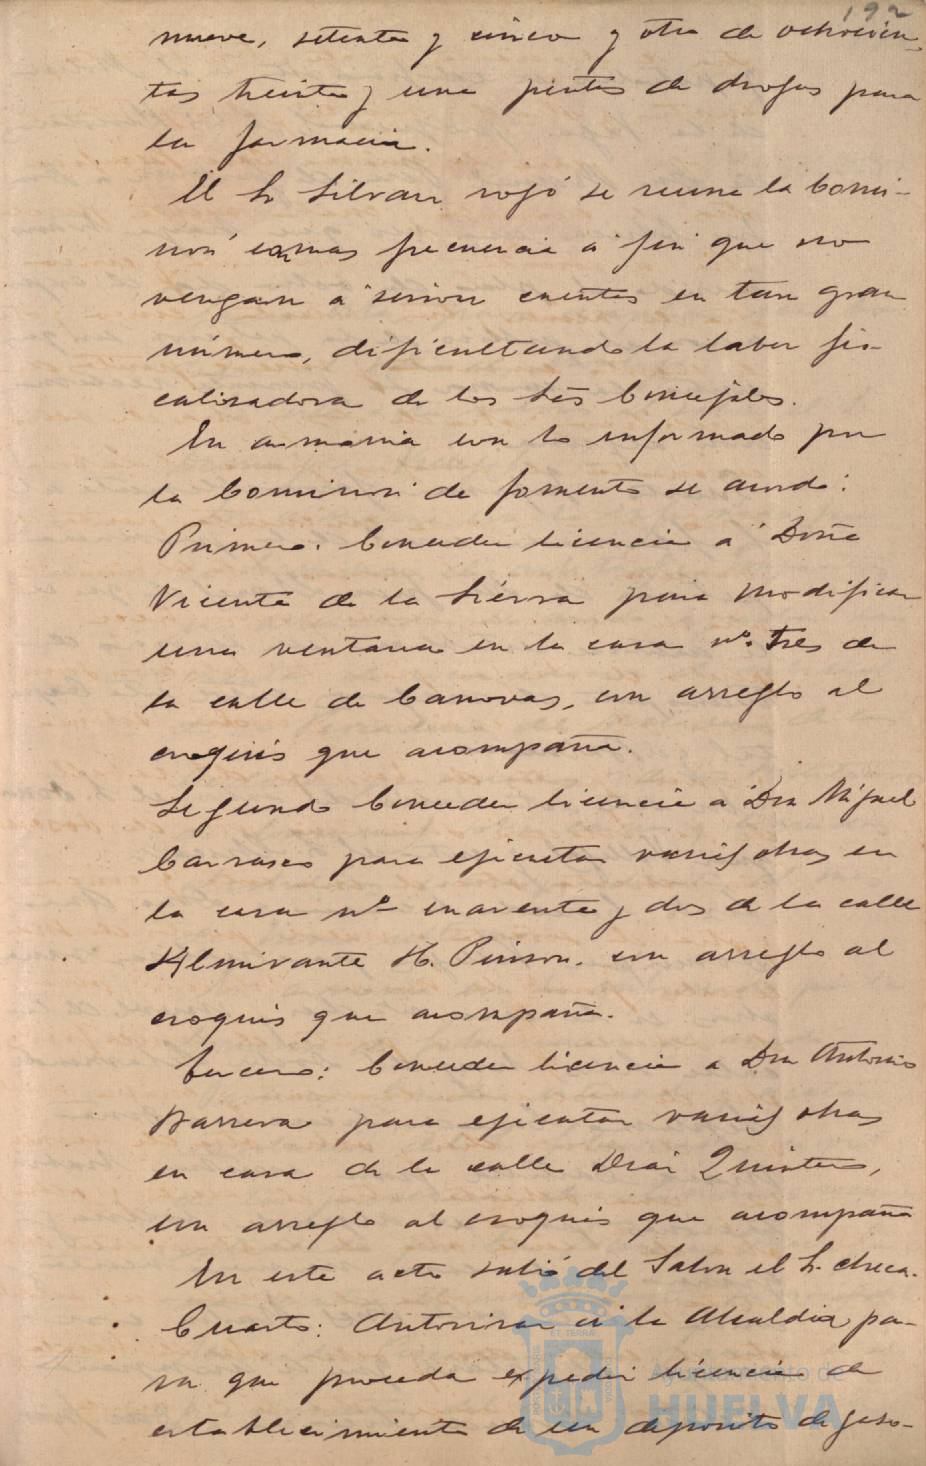 192
nueve, setenta y cinco y otra de ochocien-
tas treinta y una pintas de drogas para
la farmacia.
El Sr Silvan rogó se reuna la Comi-
sion con mas frecuencia á fin que no
vengan á sesion cuentas en tan gran
número, dificultando la labor fis-
calizadora de los Sres Concejales.
En armonia con lo informado por
la Comision de fomento se acordó:
Primero: Conceder licencia á Doña
Vicenta de la Sierra para modificar
una ventana en la casa nº. tres de
la calle de Canovas, con arreglo al
croquis que acompaña.
Segundo Conceder licencia á Don Miguel
Carrasco para ejecutar varias obras en
la casa nº cuarenta y dos de la calle
Almirante H. Pinson. con arreglo al
croquis que acompaña.
Tercero: Conceder licencia a Don Antonio
Barrera para ejecutar varias obras
en casa de la calle Quintero,
con arreglo al croquis que acompaña
En este acto salió del Salon el Sr. Checa.
Cuarto: Autorizar á la Alcaldia pa-
ra que proceda expedir licencia de
establecimiento de un deposito de gaso-
Ayuntamiento de
HUELVA